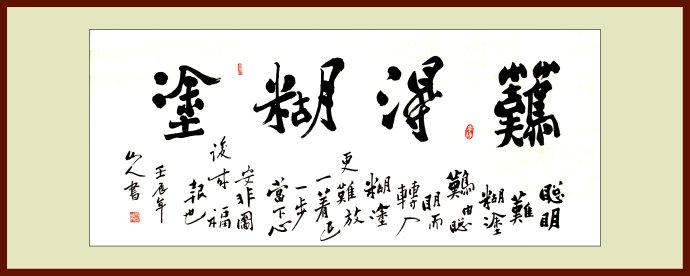 難得糊塗
聰明
難
糊塗
難由聰
明而
轉入
糊塗
更難放
一着退
一步
當下心
安非圖
後来福
報也
壬辰年
山人書